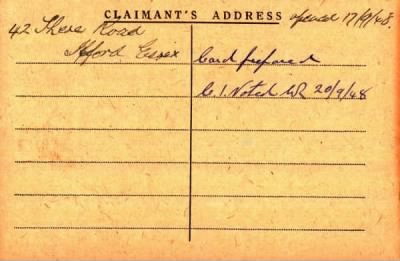 CLAIMANT'S ADDRESS opened 17/9/48.
42 Road
Ilford Essex
Card prepared
C.I. Noted 20/9/48